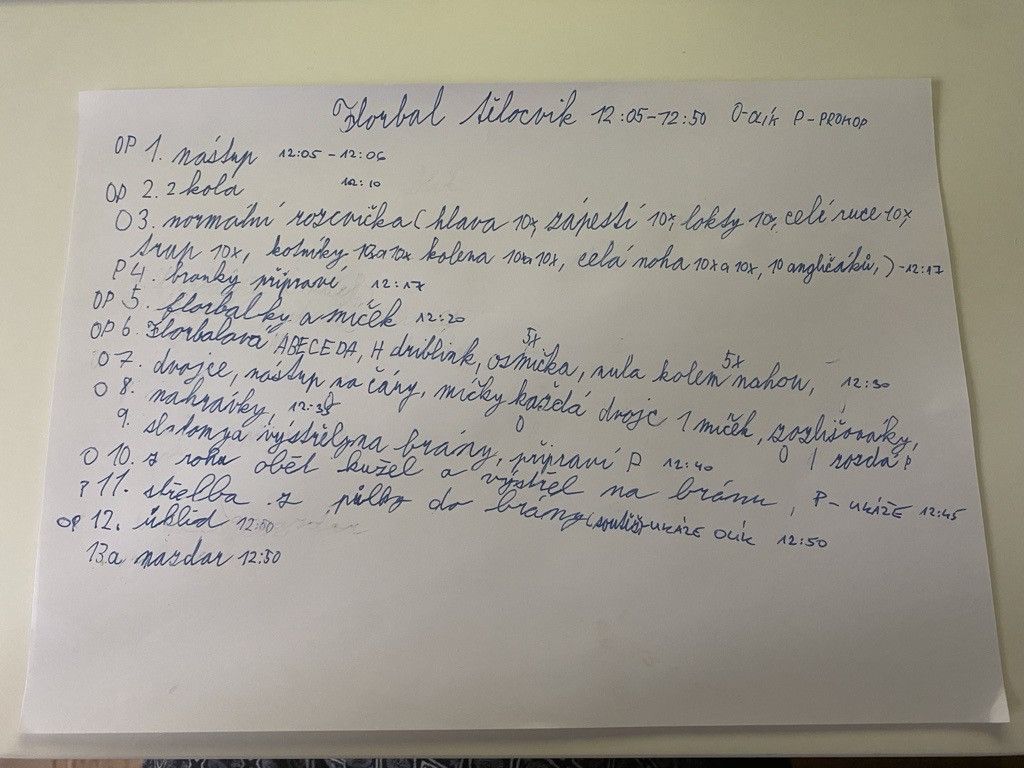 Florbal tělocvik 12:05-12:50 O-OLÍK P-PROKOP
OP 1. nástup 12:05-12:06
OP 2. 2 kola 12:10
O 3. normální rozcvička (hlava 10x, zápestí 10x, lokty 10x, celé ruce 10x
trup 10x, kotníky 10x a 10x kolena 10x a 10x, celá noha 10x a 10x, 10 angličáků,) -12:17
P 4. branky připraví 12:17
OP 5. florbalky a míček 12:20
OP 6. Florbalová ABECEDA, H driblink, osmička 5x, nula kolem nohou 5x, 12:30
O 7. dvojce, nástup na čáry, míčky každá dvojc 1 míček, rozlišováky,
O 8. nahrávky, 12:38 O O rozdá P
9. slalom a výstřely na brány, připraví P 12:40
O 10. z rohu oběť kužel a výstřel na bránu, P-UKÁŽE 12:45
P 11. střelba z půlky do brány (soutěž)-UKÁŽE OLÍK 12:50
OP 12. úklid 12:50
13. a nazdar 12:50